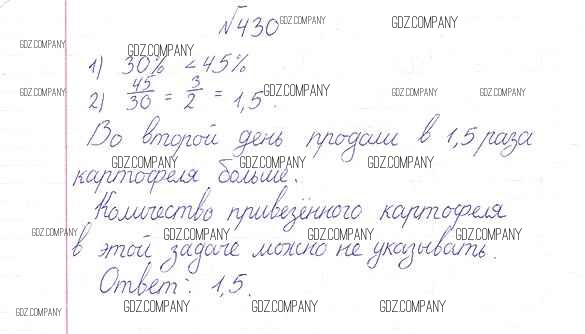 №430
1) 30% < 45%
2) 45/30 = 3/2 = 1,5.
Во второй день продали в 1,5 раза
картофеля больше.
Количество привезённого картофеля
в этой задаче можно не указывать.
Ответ: 1,5.
GDZ.COMPANY GDZ.COMPANY
GDZ.COMPANY GDZ.COMPANY
GDZ.COMPANY GDZ.COMPANY GDZ.COMPANY GDZ.COMPANY
GDZ.COMPANY GDZ.COMPANY GDZ.COMPANY
GDZ.COMPANY GDZ.COMPANY GDZ.COMPANY GDZ.COMPANY
GDZ.COMPANY GDZ.COMPANY GDZ.COMPANY GDZ.COMPANY